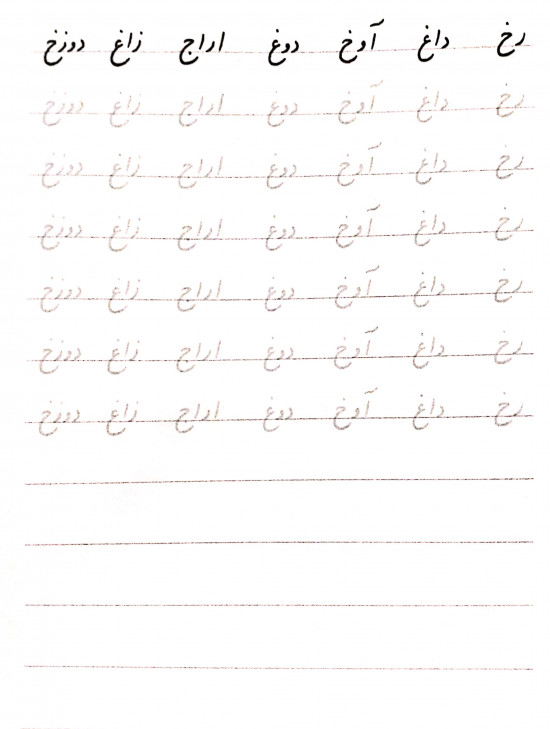 رخ داغ آوخ دوغ اراج زاغ دوزخ
رخ داغ آوخ دوغ اراج زاغ دوزخ
رخ داغ آوخ دوغ اراج زاغ دوزخ
رخ داغ آوخ دوغ اراج زاغ دوزخ
رخ داغ آوخ دوغ اراج زاغ دوزخ
رخ داغ آوخ دوغ اراج زاغ دوزخ
رخ داغ آوخ دوغ اراج زاغ دوزخ